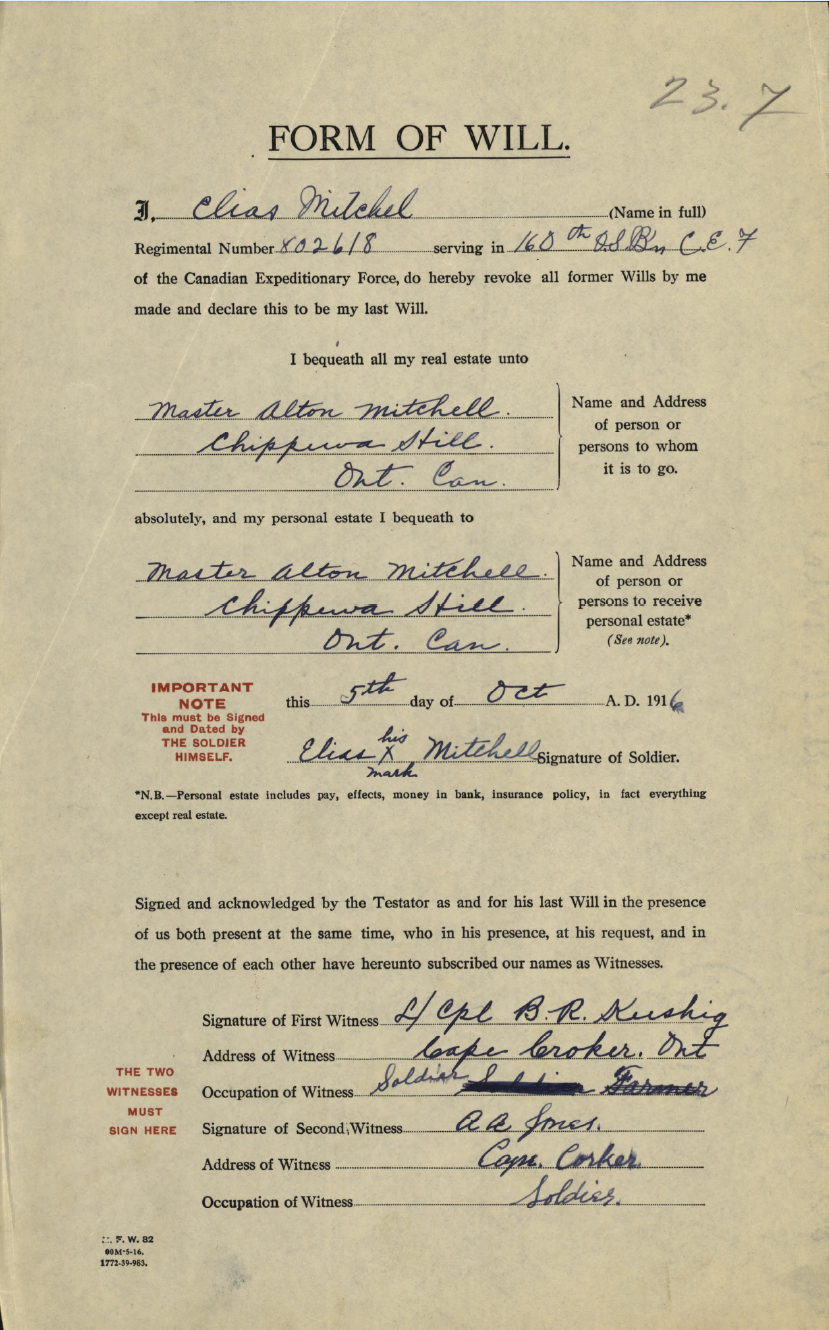 23.7
FORM OF WILL.
I, Elias Mitchel (Name in full)
Regimental Number 802618 serving in 160th O.S.Bn C.E.F
of the Canadian Expeditionary Force, do hereby revoke all former Wills by me
made and declare this to be my last Will.
I bequeath all my real estate unto
Master Alton Mitchell.
Chippewa Hill.
Ont. Can.
Name and Address
of person or
persons to whom
it is to go.
absolutely, and my personal estate I bequeath to
Master Alton Mitchell.
Chippewa Hill.
Ont. Can.
Name and Address
of person or
persons to receive
personal estate*
(See note).
IMPORTANT
NOTE
This must be Signed
and Dated by
THE SOLDIER
HIMSELF.
this 5th day of Oct A. D. 1916
his
Elias X Mitchell Signature of Soldier.
mark
*N.B.—Personal estate includes pay, effects, money in bank, insurance policy, in fact everything
except real estate.
Signed and acknowledged by the Testator as and for his last Will in the presence
of us both present at the same time, who in his presence, at his request, and in
the presence of each other have hereunto subscribed our names as Witnesses.
Signature of First Witness L/Cpl B. R. Keeshig
Address of Witness Cape Croker. Ont
THE TWO
WITNESSES
MUST
SIGN HERE
Occupation of Witness Soldier Soldier Farmer
Signature of Second Witness A A Jones.
Address of Witness Cape. Corker.
Occupation of Witness Soldier.
F. W. 82
00M-5-16.
1772-39-983.